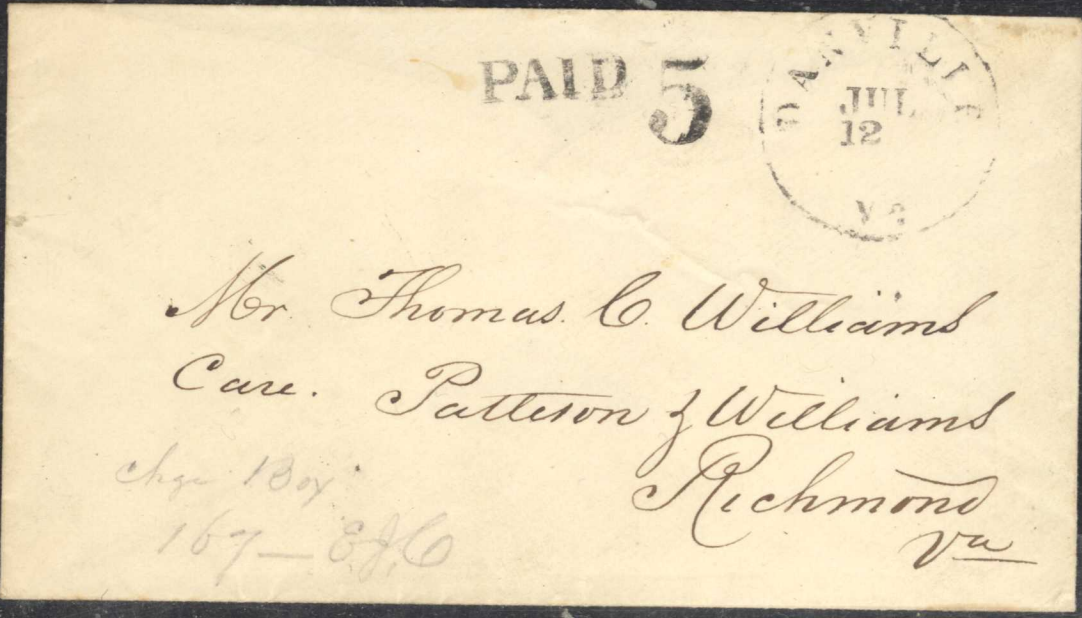 PAID 5
DANVILLE
JUL
12
Va
Mr. Thomas. C. Williams
Care. Patteson & Williams
Richmond
Va
chge Box
167 — E.J.C